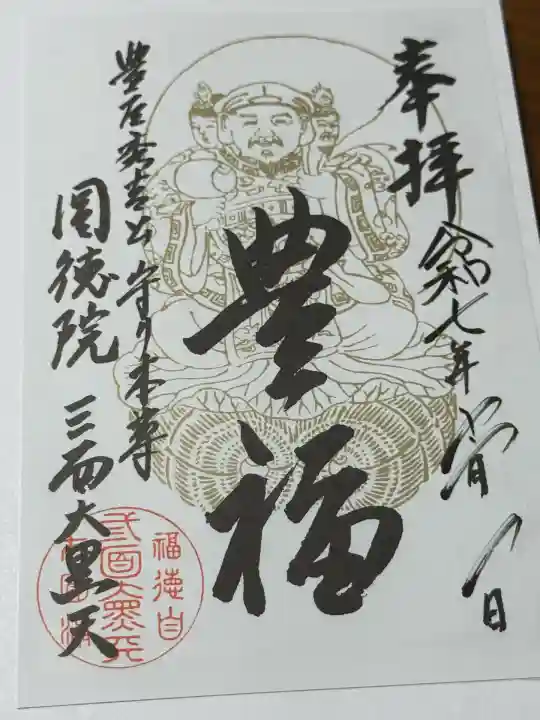 奉拝
令和七年 月 日
豊福
豊臣秀吉公 守り本尊
圓徳院 三面大黒天
福徳自
三面大黒天